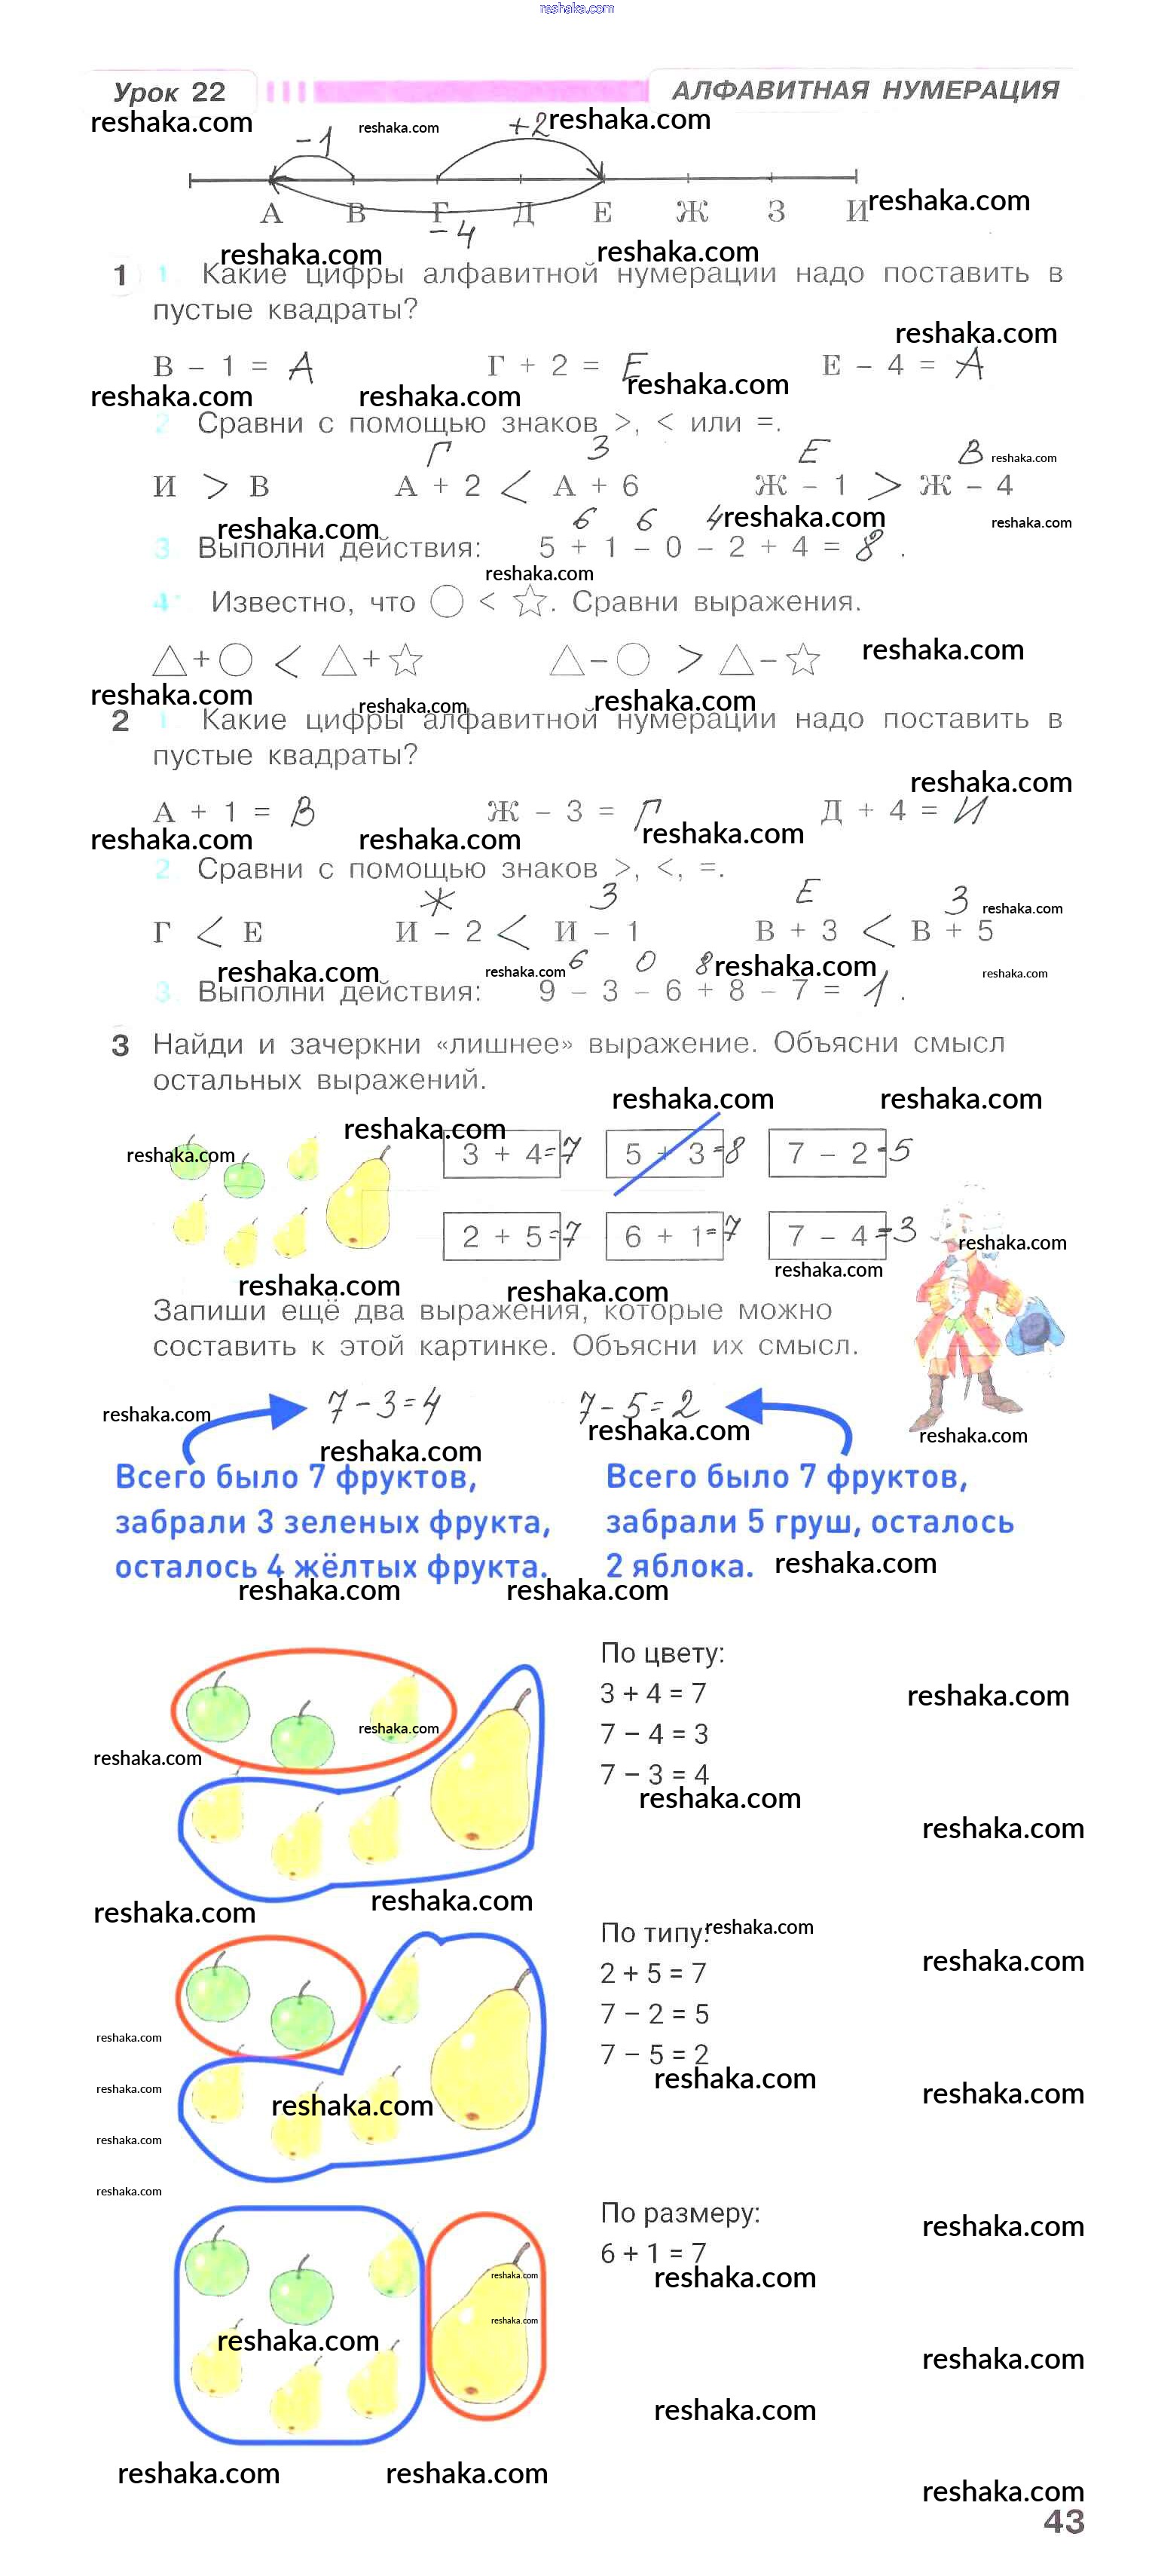 reshaka.com
Урок 22 АЛФАВИТНАЯ НУМЕРАЦИЯ
reshaka.com reshaka.com reshaka.com
-1 +2
А В Г Д Е Ж З И reshaka.com
-4
reshaka.com reshaka.com
1 1 Какие цифры алфавитной нумерации надо поставить в
пустые квадраты?
reshaka.com
В - 1 = А Г + 2 = Е Е - 4 = А
reshaka.com reshaka.com reshaka.com
2 Сравни с помощью знаков >, < или =.
Г З Е В reshaka.com
И > В А + 2 < А + 6 Ж - 1 > Ж - 4
reshaka.com 6 6 4 reshaka.com reshaka.com
3 Выполни действия: 5 + 1 - 0 - 2 + 4 = 8 .
reshaka.com
4* Известно, что ○ < ☆. Сравни выражения.
△ + ○ < △ + ☆ △ - ○ > △ - ☆ reshaka.com
reshaka.com reshaka.com reshaka.com
2 1 Какие цифры алфавитной нумерации надо поставить в
пустые квадраты?
reshaka.com
А + 1 = В Ж - 3 = Г Д + 4 = И
reshaka.com reshaka.com reshaka.com
2 Сравни с помощью знаков >, <, =.
Ж З Е З reshaka.com
Г < Е И - 2 < И - 1 В + 3 < В + 5
reshaka.com reshaka.com 6 0 8 reshaka.com reshaka.com
3 Выполни действия: 9 - 3 - 6 + 8 - 7 = 1 .
3 Найди и зачеркни «лишнее» выражение. Объясни смысл
остальных выражений.
reshaka.com reshaka.com
reshaka.com
reshaka.com 3 + 4 =7 5 + 3 =8 7 - 2 =5
2 + 5 =7 6 + 1 =7 7 - 4 =3
reshaka.com
reshaka.com
reshaka.com reshaka.com
Запиши ещё два выражения, которые можно
составить к этой картинке. Объясни их смысл.
reshaka.com 7-3=4 7-5=2
reshaka.com reshaka.com reshaka.com
Всего было 7 фруктов,
забрали 3 зеленых фрукта,
осталось 4 жёлтых фрукта.
Всего было 7 фруктов,
забрали 5 груш, осталось
2 яблока. reshaka.com
reshaka.com reshaka.com
По цвету:
3 + 4 = 7 reshaka.com
reshaka.com 7 - 4 = 3
reshaka.com 7 - 3 = 4
reshaka.com
reshaka.com
reshaka.com reshaka.com
По типу: reshaka.com
2 + 5 = 7 reshaka.com
7 - 2 = 5
reshaka.com 7 - 5 = 2
reshaka.com reshaka.com reshaka.com
reshaka.com
reshaka.com
reshaka.com
По размеру: reshaka.com
6 + 1 = 7
reshaka.com reshaka.com
reshaka.com
reshaka.com reshaka.com
reshaka.com
reshaka.com reshaka.com
reshaka.com
43